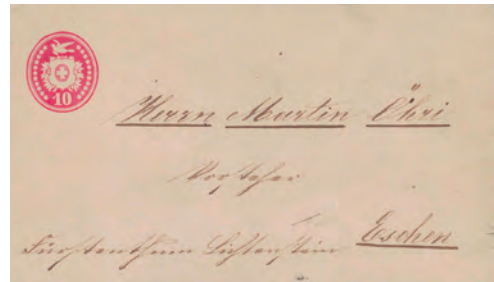 10
Herrn Martin Öhri
Vorsteher
Fürstenthum Lichtenstein Eschen